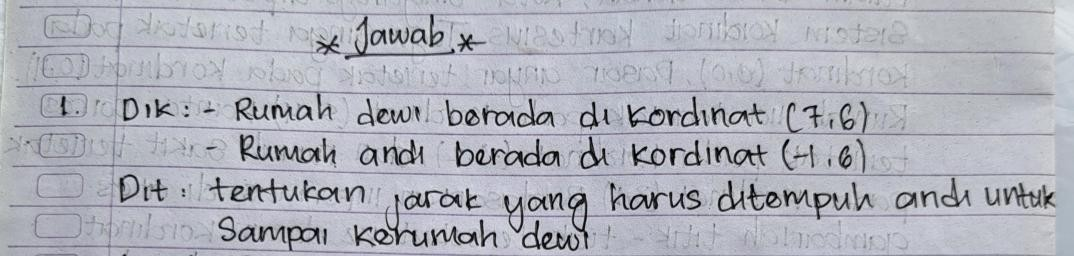 * Jawab! *
1. Dik : - Rumah dewi berada di kordinat (7,6)
- Rumah andi berada di kordinat (-1,6)
Dit : tentukan jarak yang harus ditempuh andi untuk
Sampai kerumah dewi